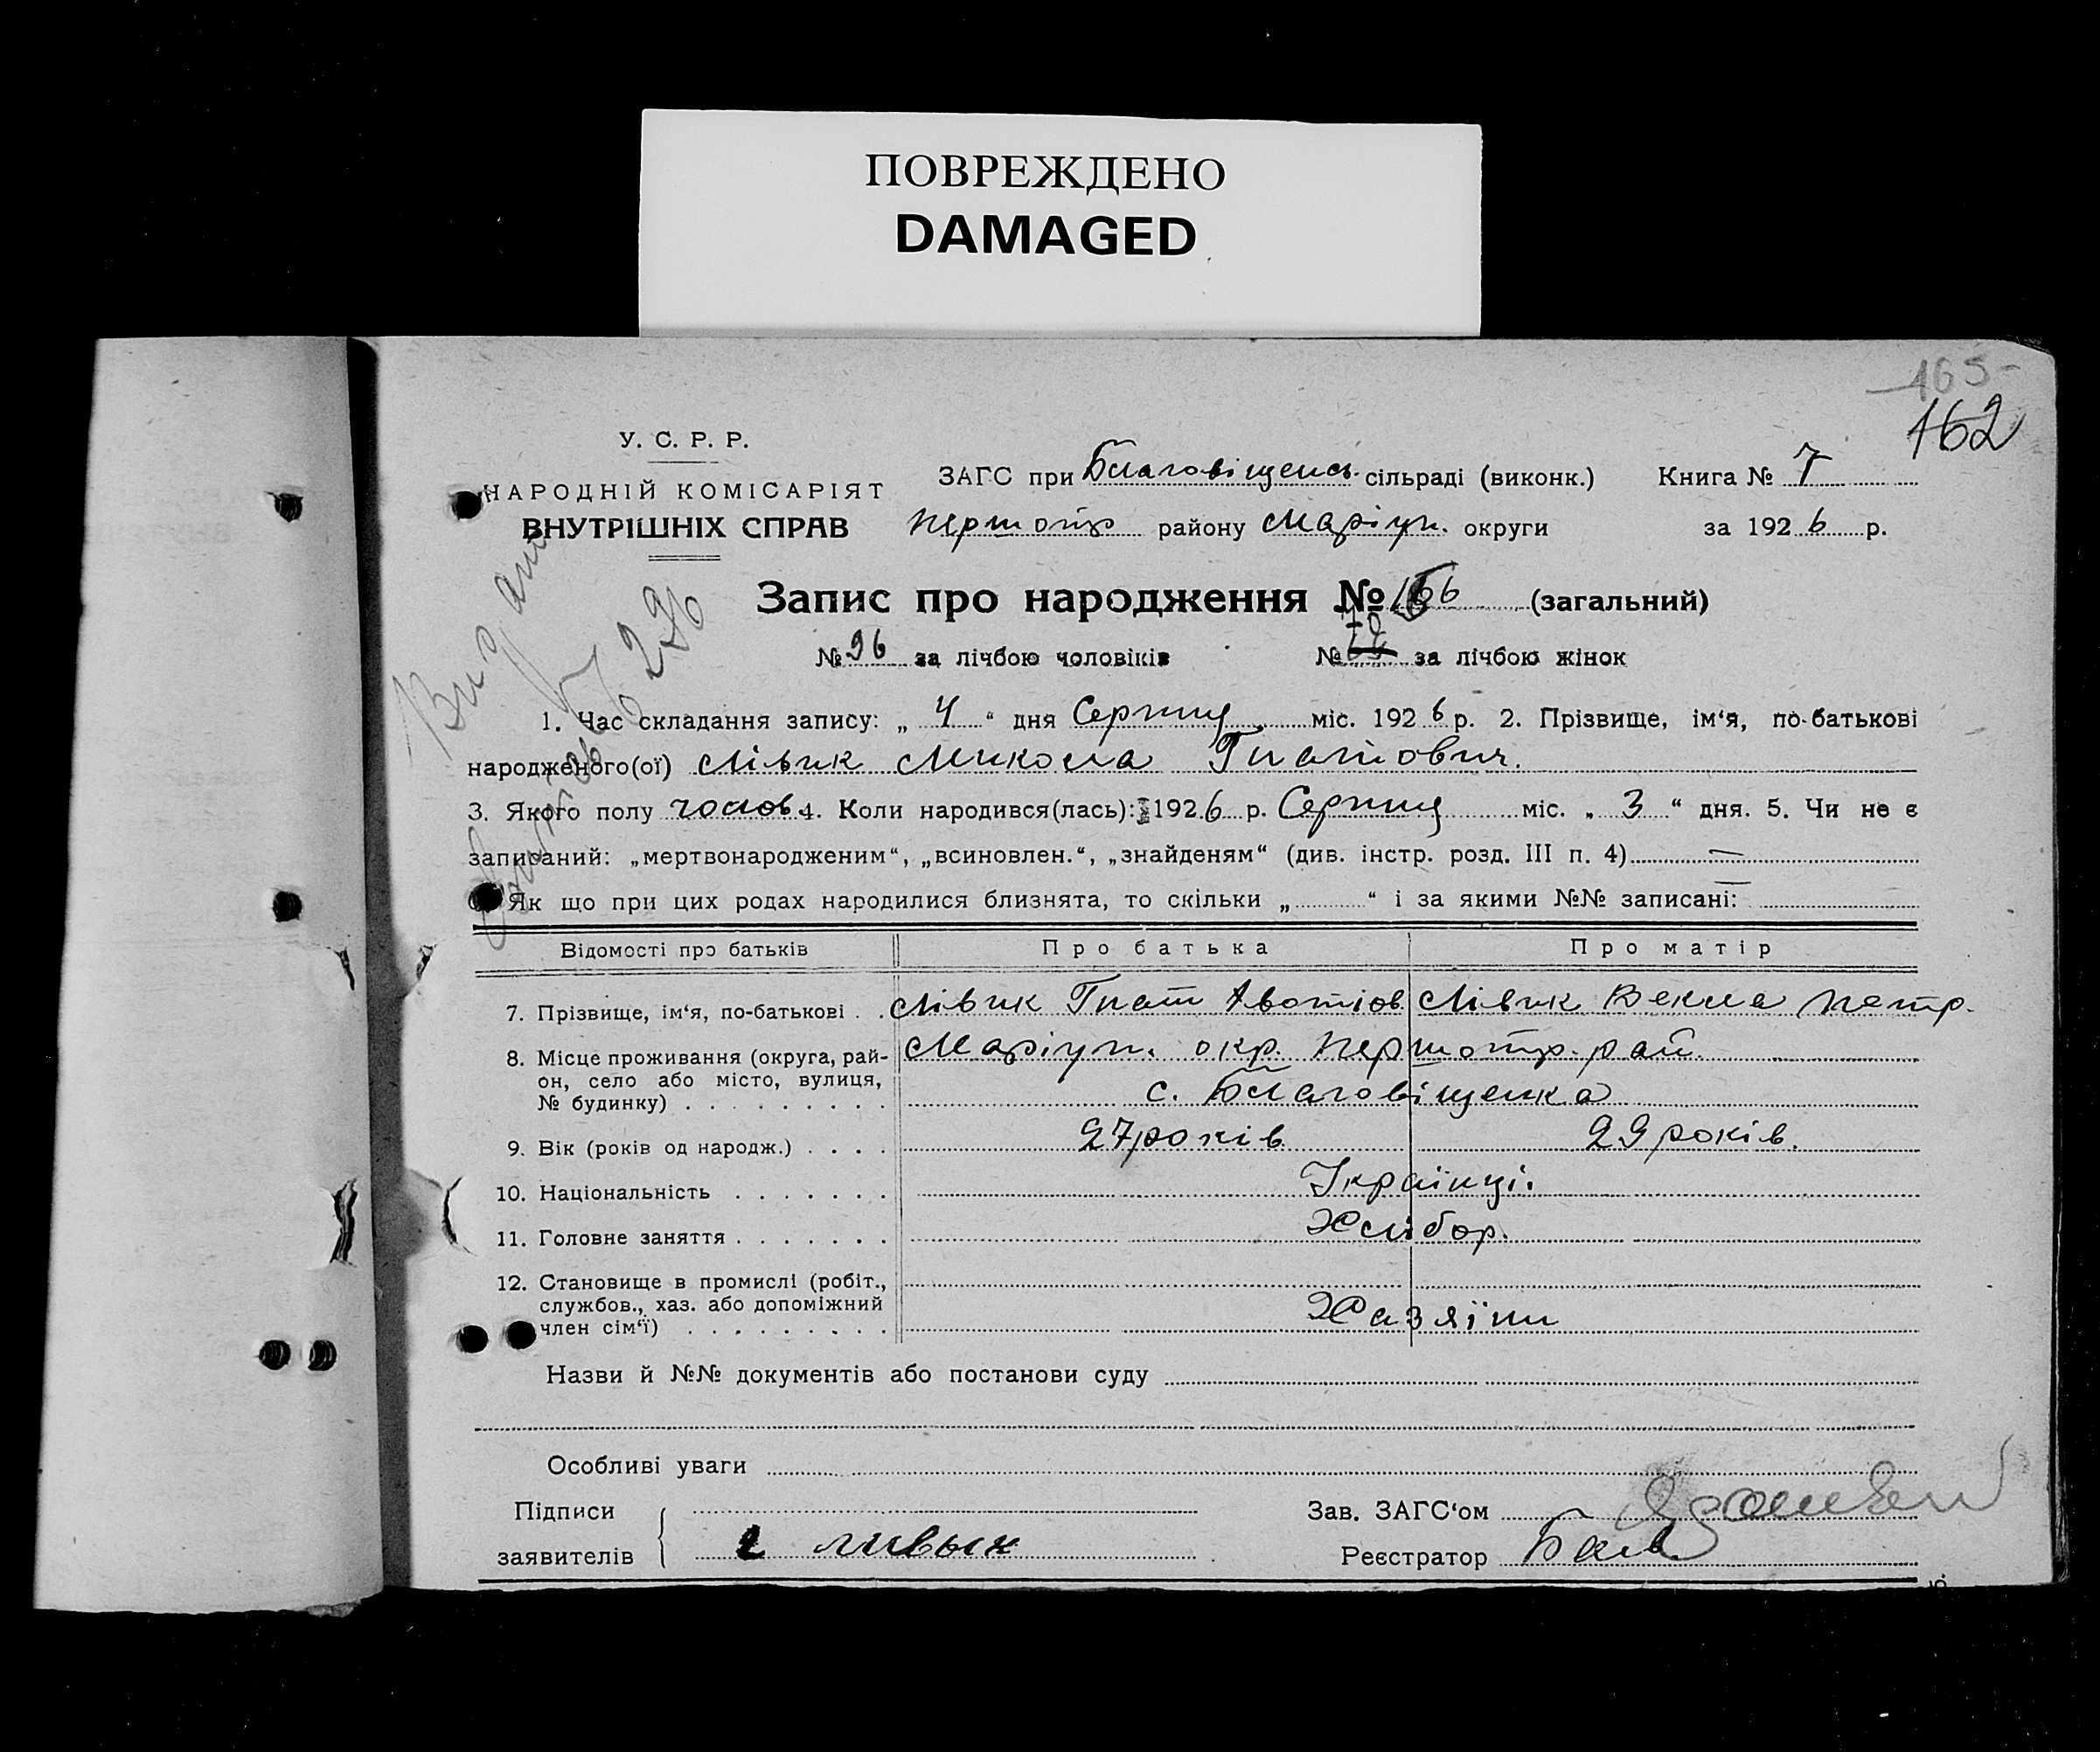 ПОВРЕЖДЕНО
DAMAGED
165
162
У. С. Р. Р.
НАРОДНІЙ КОМІСАРІЯТ
ВНУТРІШНІХ СПРАВ
ЗАГС при Благовіщенсь. сільраді (виконк.) Книга № 7
Першотр району Маріуп. округи за 1926 р.
Запис про народження № 166 (загальний)
№ 96 за лічбою чоловіків № 70 за лічбою жінок
1. Час складання запису: „ 4 “ дня Серпня міс. 1926 р. 2. Прізвище, ім‘я, по-батькові
народженого(ої) Лівик Микола Гнатович.
3. Якого полу чолов. 4. Коли народився(лась): 1926 р. Серпня міс. „ 3 “ дня. 5. Чи не є
записаний: „мертвонародженим“, „всиновлен.“, „знайденям“ (див. інстр. розд. III п. 4) —
Як що при цих родах народилися близнята, то скільки „ “ і за якими №№ записані: —
Відомості про батьків Про батька Про матір
7. Прізвище, ім‘я, по-батькові . . Лівик Гнат Лівик Векла Петр.
8. Місце проживання (округа, рай- Маріуп. окр. Першотр. рай.
он, село або місто, вулиця,
№ будинку) . . . . . . . . . с. Благовіщенка
9. Вік (років од народж.) . . . . 27 років 29 років.
10. Національність . . . . . . . Українці.
11. Головне заняття . . . . . . . Хлібор.
12. Становище в промислі (робіт.,
службов., хаз. або допоміжний
член сім‘ї) . . . . . . . . . Хазяїни
Назви й №№ документів або постанови суду
Особливі уваги
Підписи Зав. ЗАГС‘ом
заявителів ливык Реєстратор